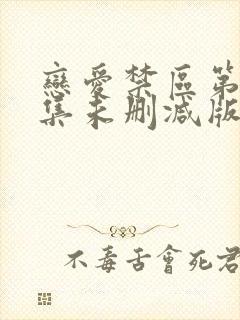 戀愛禁區第
集未刪減版
不毒舌會死君